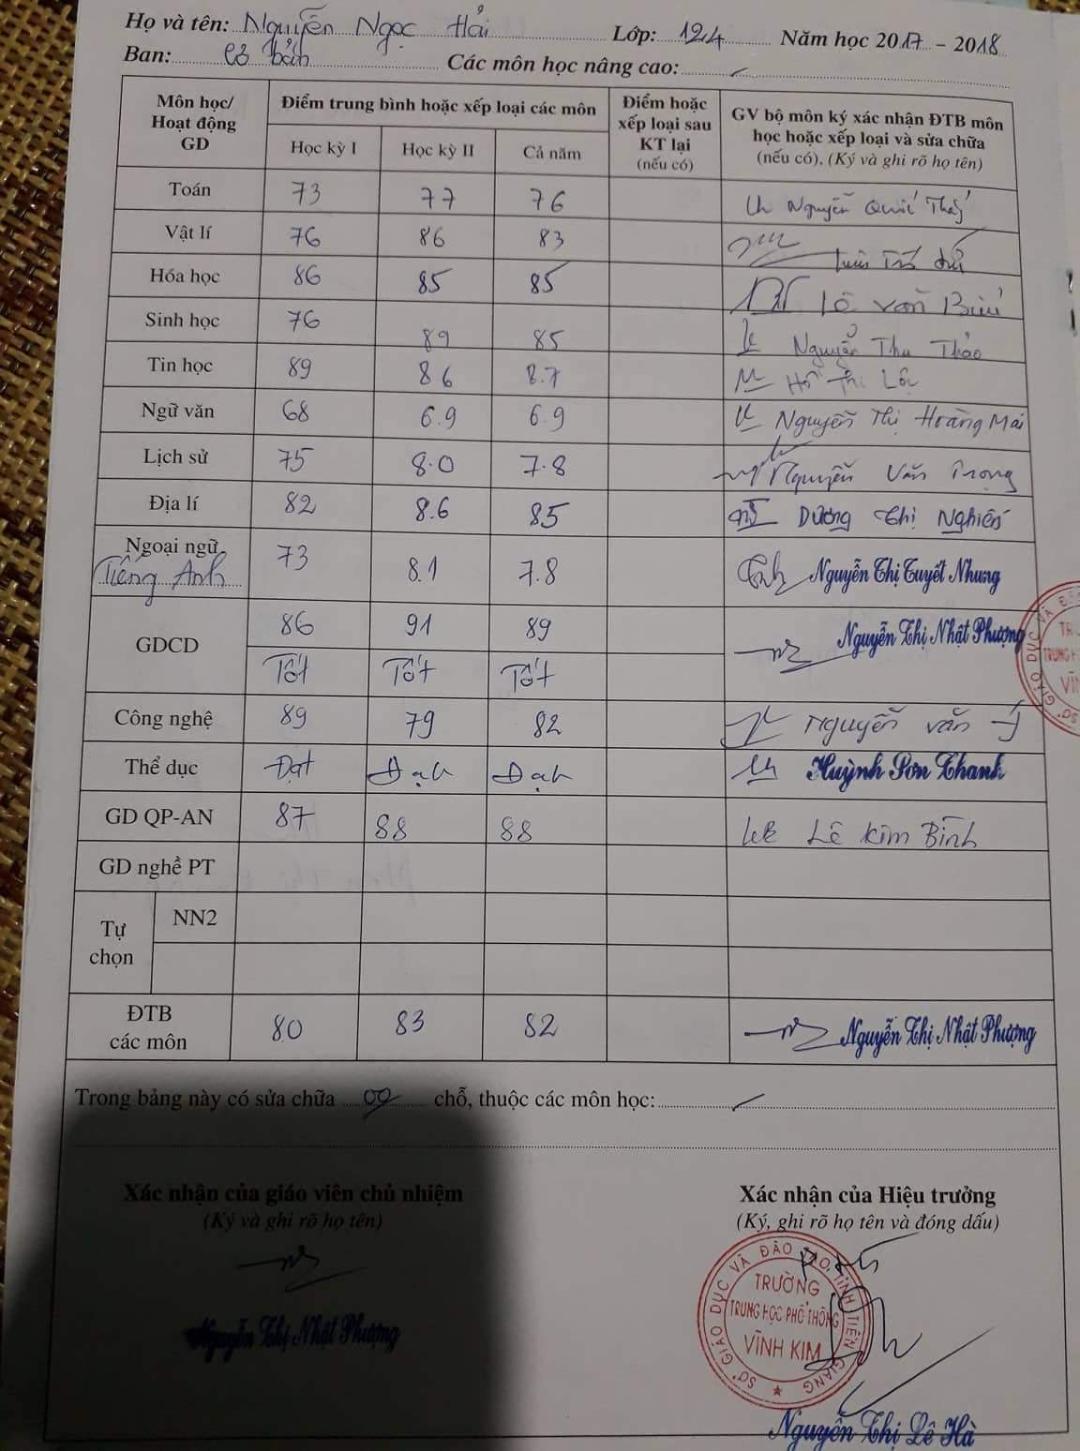 Họ và tên: Nguyễn Ngọc Hải Lớp: 12.4 Năm học 2017 - 2018
Ban: Cơ bản Các môn học nâng cao:
Môn học/ Hoạt động GD Điểm trung bình hoặc xếp loại các môn Điểm hoặc xếp loại sau KT lại (nếu có) GV bộ môn ký xác nhận ĐTB môn học hoặc xếp loại và sửa chữa (nếu có). (Ký và ghi rõ họ tên)
Học kỳ I Học kỳ II Cả năm
Toán 73 77 76 Nguyễn Quốc Thấy
Vật lí 76 86 83
Hóa học 86 85 85 Lê Văn Bửu
Sinh học 76 89 85 Nguyễn Thu Thảo
Tin học 89 86 8.7 Hồ Thị Lộc
Ngữ văn 68 6.9 6.9 Nguyễn Thị Hoàng Mai
Lịch sử 75 8.0 7.8 Nguyễn Văn Trọng
Địa lí 82 8.6 85 Dương Thị Nghiến
Ngoại ngữ: Tiếng Anh 73 8.1 7.8 Nguyễn Thị Tuyết Nhung
GDCD 86 91 89 Nguyễn Thị Nhật Phượng
Tốt Tốt Tốt
Công nghệ 89 79 82 Nguyễn Văn Ý
Thể dục Đạt Đạt Đạt Huỳnh Sơn Thanh
GD QP-AN 87 88 88 Lê Kim Bình
GD nghề PT
Tự chọn NN2
ĐTB các môn 80 83 82 Nguyễn Thị Nhật Phượng
Trong bảng này có sửa chữa 00 chỗ, thuộc các môn học:
Xác nhận của giáo viên chủ nhiệm Xác nhận của Hiệu trưởng
(Ký và ghi rõ họ tên) (Ký, ghi rõ họ tên và đóng dấu)
SỞ GIÁO DỤC VÀ ĐÀO TẠO TỈNH TIỀN GIANG
TRƯỜNG
TRUNG HỌC PHỔ THÔNG
VĨNH KIM
Nguyễn Thị Nhật Phượng
Nguyễn Thị Lê Hà